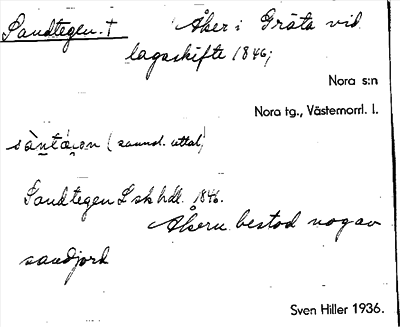 Sandtegen. † Åker i Gräta vid
lagaskifte 1846;
Nora s:n
Nora tg., Västernorrl. l.
sàntá̤on (sannol. uttal)
Sandtegen L sk hdl. 1846.
Åkern bestod nog av
sandjord
Sven Hiller 1936.